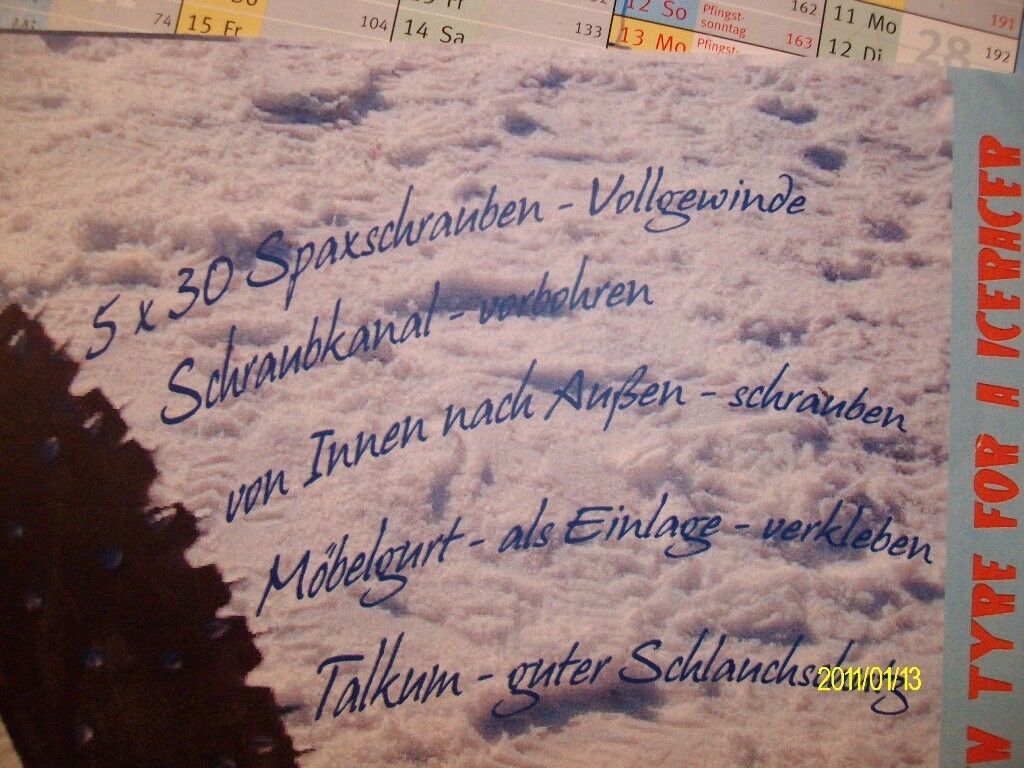 Mi
74
15 Fr
104
14 Sa
133
12 So Pfingst-
sonntag
162
13 Mo Pfingst-
163
11 Mo
191
12 Di
28
192
5 x 30 Spaxschrauben - Vollgewinde
Schraubkanal - vorbohren
von Innen nach Außen - schrauben
Möbelgurt - als Einlage - verkleben
Talkum - guter Schlauchschutz
2011/01/13
TYPE FOR A ICERACER